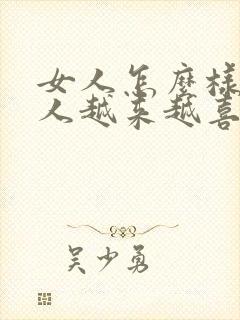 女人怎麽様
人越来越喜
吴少勇